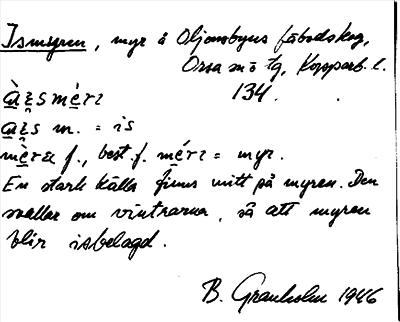 Ismyren, myr å Oljonsbyns fäbodskog,
Orsa sn o tg, Kopparb. l.
134.
m. = is
f., best. f. = myr.
En stark källa finns mitt på myren. Den
svallar om vintrarna, så att myren
blir isbelagd.
B. Granholm 1946